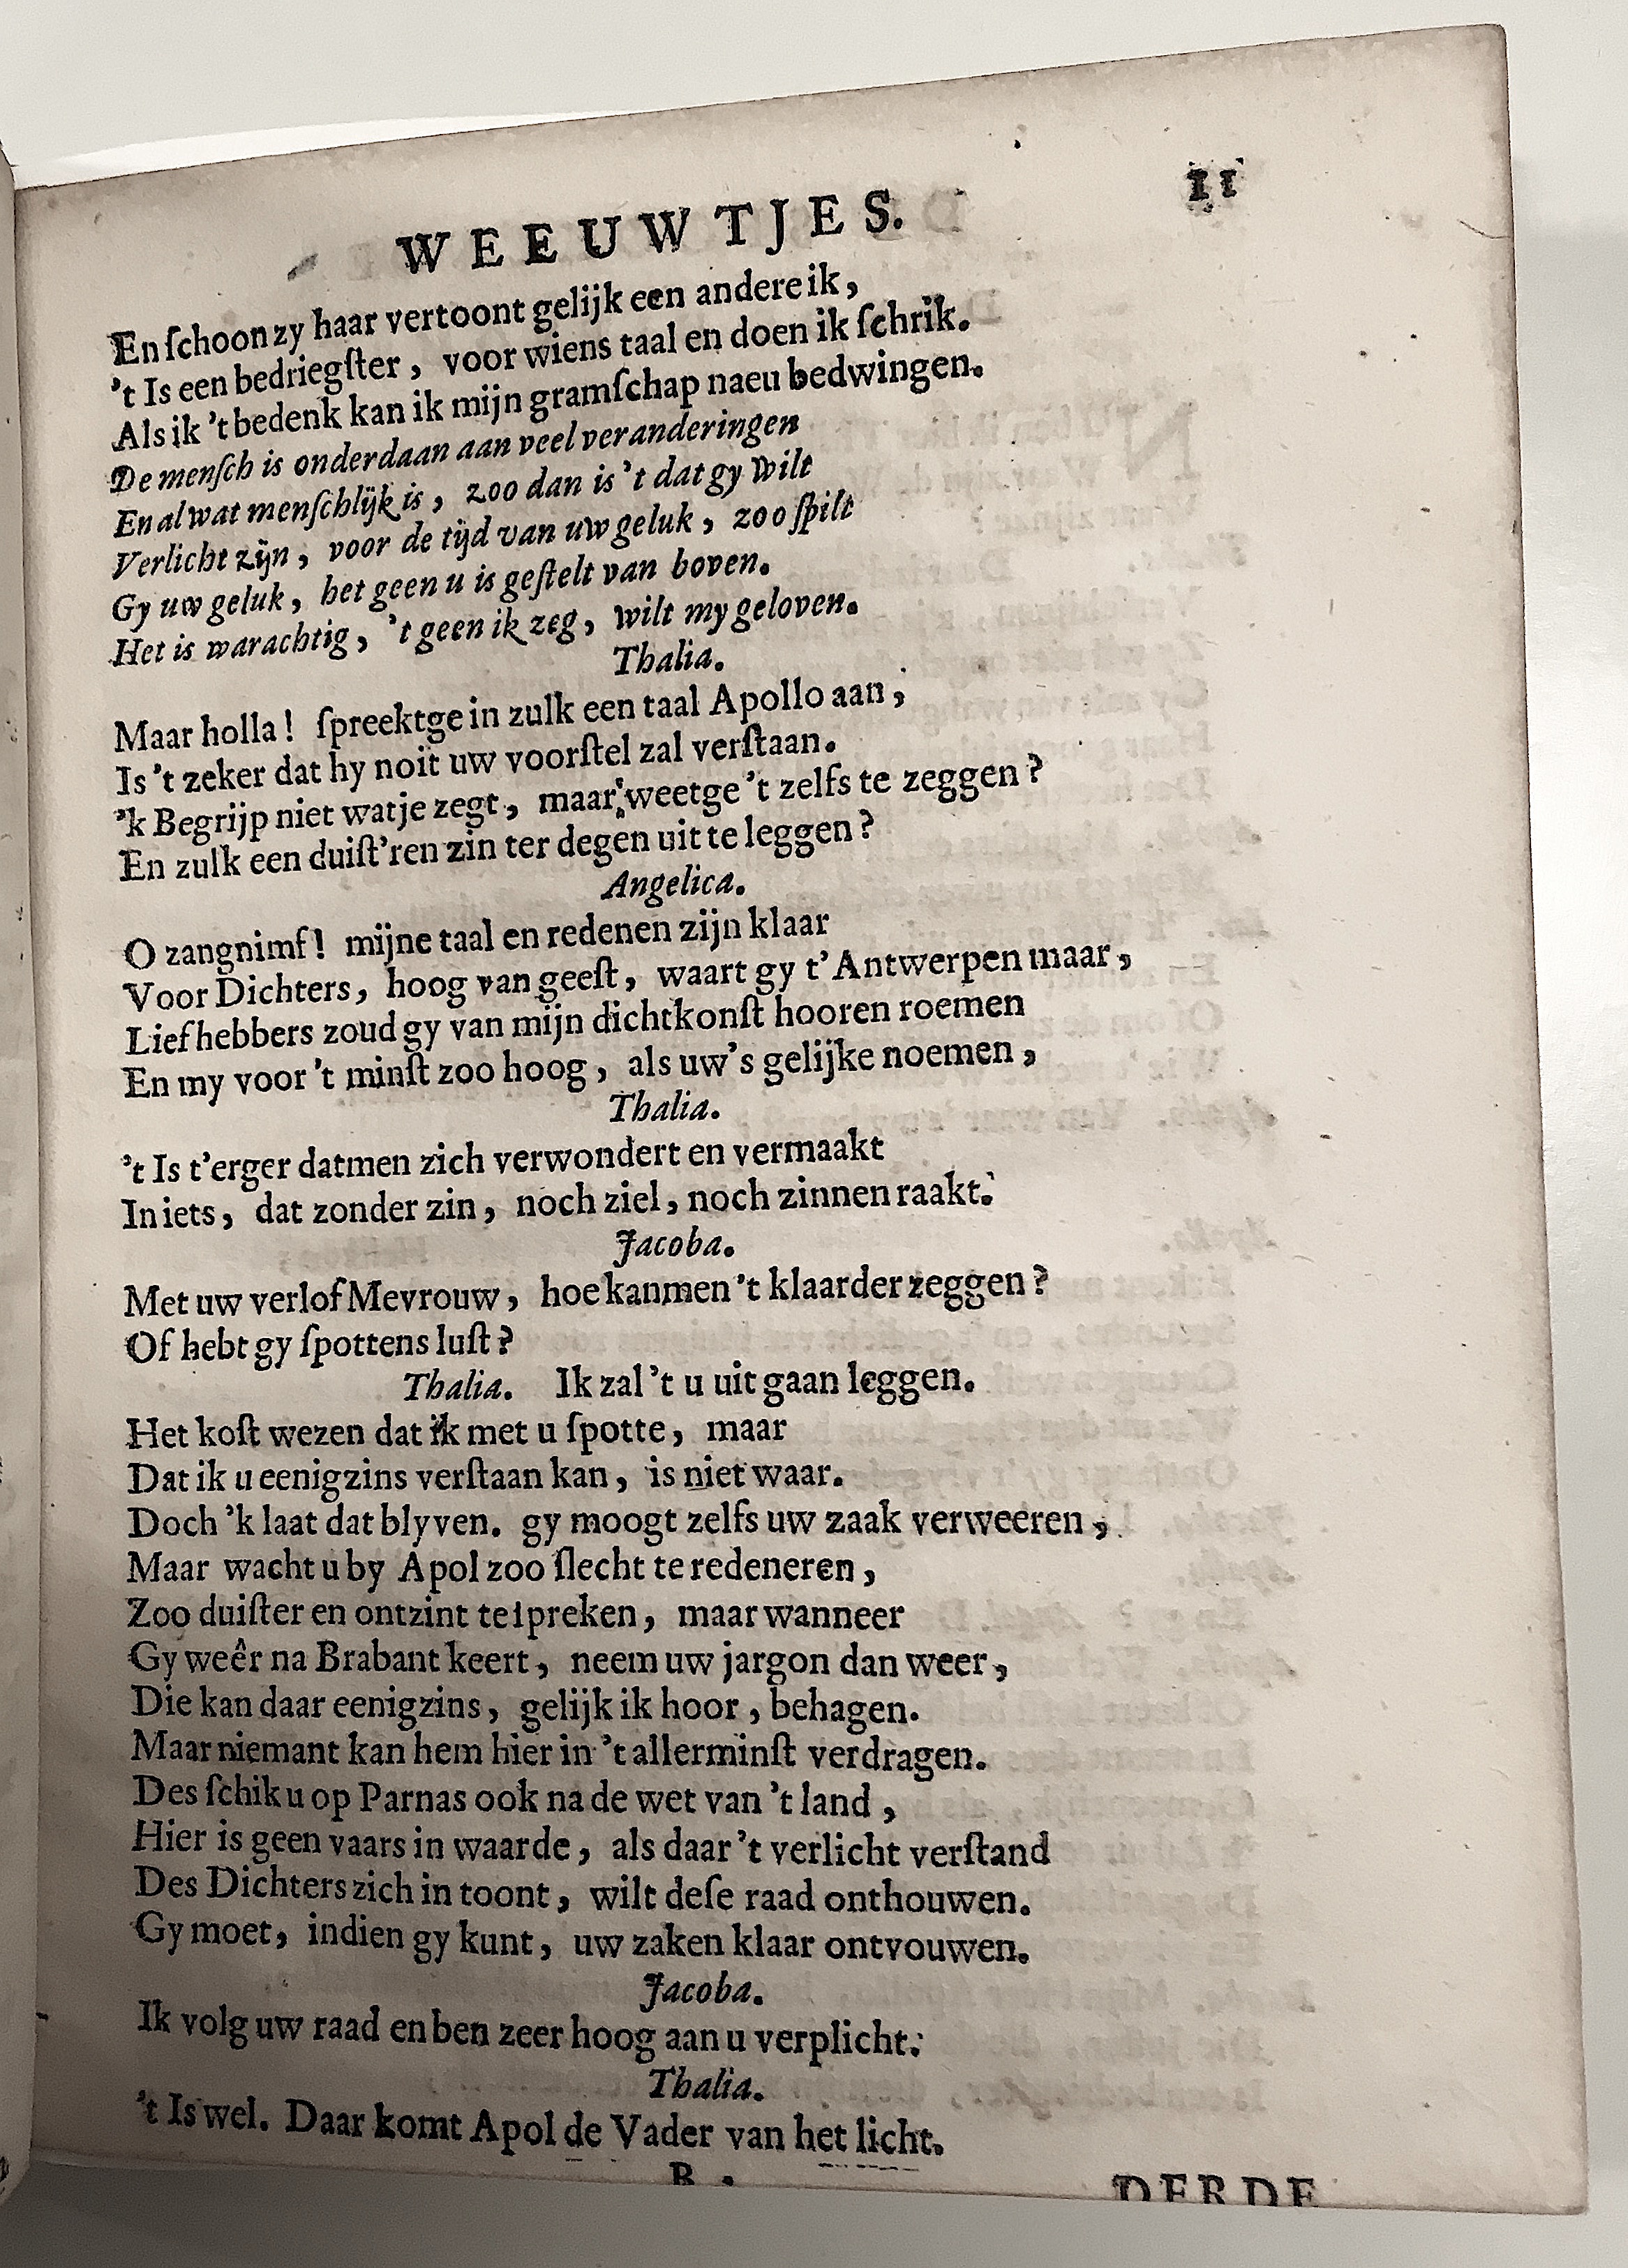 WEEUWTJES. 11
En ſchoon zy haar vertoont gelijk een andere ik,
't Is een bedriegſter, voor wiens taal en doen ik ſchrik.
Als ik 't bedenk kan ik mijn gramſchap naeu bedwingen.
De menſch is onderdaan aan veel veranderingen
En al wat menſchlijk is, zoo dan is 't dat gy wilt
Verlicht zijn, voor de tijd van uw geluk, zoo ſpilt
Gy uw geluk, het geen u is geſtelt van boven.
Het is warachtig, 't geen ik zeg, wilt my geloven.
Thalia.
Maar holla! ſpreektge in zulk een taal Apollo aan,
Is 't zeker dat hy noit uw voorſtel zal verſtaan.
'k Begrijp niet watje zegt, maar weetge 't zelfs te zeggen?
En zulk een duiſt'ren zin ter degen uit te leggen?
Angelica.
O zangnimf! mijne taal en redenen zijn klaar
Voor Dichters, hoog van geeſt, waart gy t'Antwerpen maar,
Liefhebbers zoud gy van mijn dichtkonſt hooren roemen
En my voor 't minſt zoo hoog, als uw's gelijke noemen,
Thalia.
't Is t'erger datmen zich verwondert en vermaakt
In iets, dat zonder zin, noch ziel, noch zinnen raakt.
Jacoba.
Met uw verlof Mevrouw, hoe kanmen 't klaarder zeggen?
Of hebt gy ſpottens luſt?
Thalia. Ik zal 't u uit gaan leggen.
Het koſt wezen dat ik met u ſpotte, maar
Dat ik u eenigzins verſtaan kan, is niet waar.
Doch 'k laat dat blyven. gy moogt zelfs uw zaak verweeren,
Maar wacht u by Apol zoo ſlecht te redeneren,
Zoo duiſter en ontzint te ſpreken, maar wanneer
Gy weêr na Brabant keert, neem uw jargon dan weer,
Die kan daar eenigzins, gelijk ik hoor, behagen.
Maar niemant kan hem hier in 't allerminſt verdragen.
Des ſchik u op Parnas ook na de wet van 't land,
Hier is geen vaars in waarde, als daar 't verlicht verſtand
Des Dichters zich in toont, wilt deſe raad onthouwen.
Gy moet, indien gy kunt, uw zaken klaar ontvouwen.
Jacoba.
Ik volg uw raad en ben zeer hoog aan u verplicht.
Thalia.
't Is wel. Daar komt Apol de Vader van het licht.
DERDE